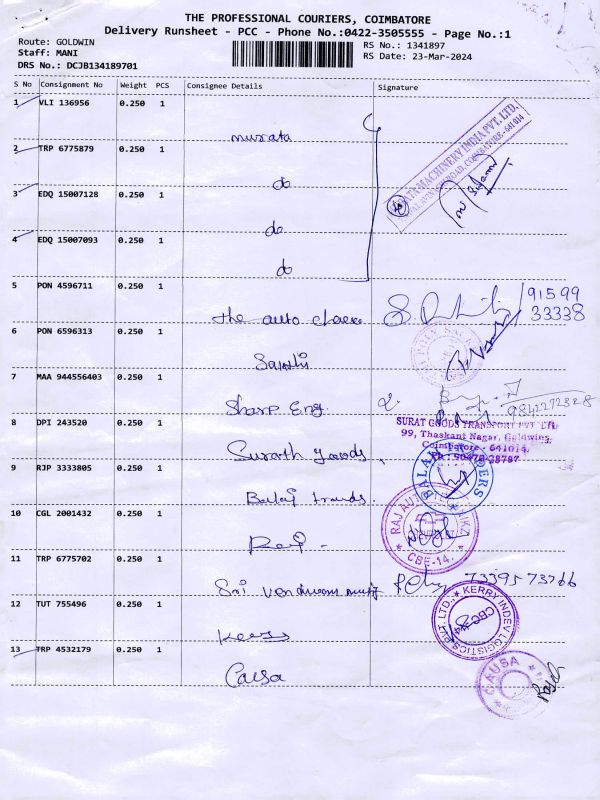 THE PROFESSIONAL COURIERS, COIMBATORE
Delivery Runsheet - PCC - Phone No.:0422-3505555 - Page No.:1
Route: GOLDWIN
Staff: MANI
DRS No.: DCJB134189701
RS No.: 1341897
RS Date: 23-Mar-2024
S No Consignment No Weight PCS Consignee Details Signature
1 VLI 136956 0.250 1
murata
2 TRP 6775879 0.250 1
do
3 EDQ 15007128 0.250 1
do
4 EDQ 15007093 0.250 1
do
MACHINERY INDIA PVT. LTD.
COIMBATORE-641 014
5 PON 4596711 0.250 1
the auto
91599
33338
6 PON 6596313 0.250 1
7 MAA 944556403 0.250 1
Sharp Eng.
9842272328
8 DPI 243520 0.250 1
Surath goods
SURAT GOODS TRANSPORT PVT LTD
99, Thaskant Nagar, Goldwins,
Coimbatore - 641014.
9 RJP 3333805 0.250 1
Balaji trends.
BALAJI TRADERS
10 CGL 2001432 0.250 1
RAJ
CBE-14.
11 TRP 6775702 0.250 1
Sri
7339573766
12 TUT 755496 0.250 1
KERRY INDEV LOGISTICS PVT. LTD.,
13 TRP 4532179 0.250 1
Causa
CAUSA